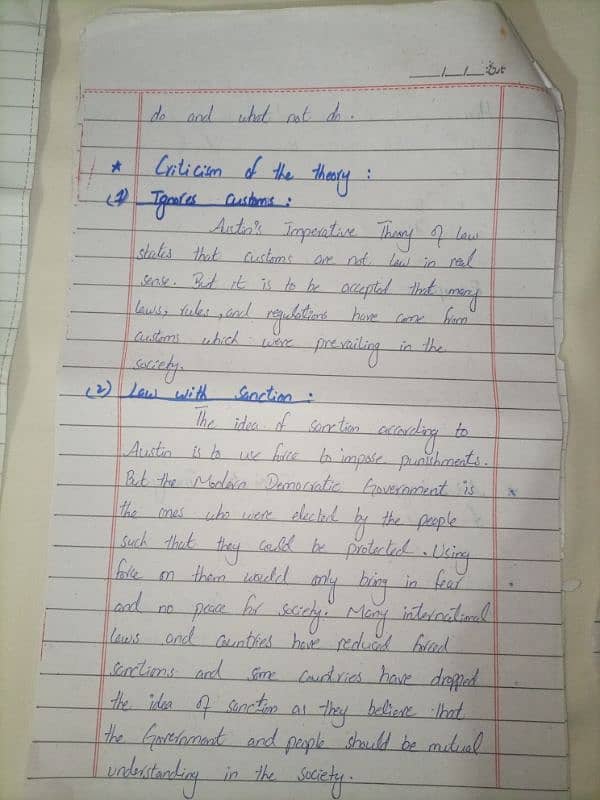 do and what not do.
* Criticism of the theory :
(1) Ignores customs :
Austin's Imperative Theory of law
states that customs are not law in real
sense. But it is to be accepted that many
laws, rules, and regulations have come from
customs which were prevailing in the
society.
(2) Law with Sanction :
The idea of sanction according to
Austin is to use force to impose punishments.
But the Modern Democratic Government is
the ones who were elected by the people
such that they could be protected. Using
force on them would only bring in fear
and no peace for society. Many international
laws and countries have reduced forced
sanctions and some countries have dropped
the idea of sanction as they believe that
the Government and people should be mutual
understanding in the society.